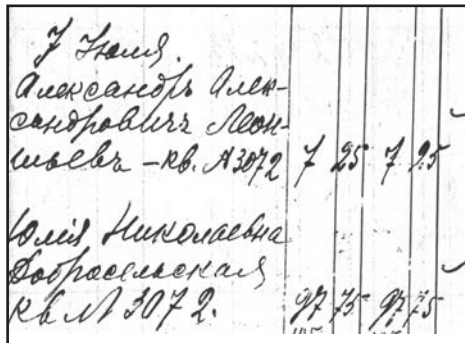 7 Июля.
Александръ Алек-
сандровичъ Леон-
тьевъ - кв. № 3072 7 25 7 25
Юлія Николаевна
Добросельская
кв № 3072. 97 75 97 75